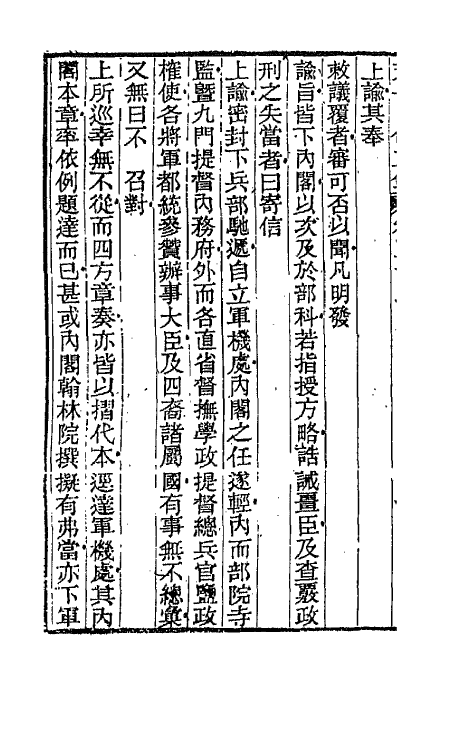 上諭其奉
敕議覆者審可否以聞凡明發
諭旨皆下內閣以次及於部科若指授方略誥誡畺臣及查覈政
刑之失當者曰寄信
上諭密封下兵部馳遞自立軍機處內閣之任遂輕內而部院寺
監暨九門提督內務府外而各直省督撫學政提督總兵官鹽政
榷使各將軍都統參贊辦事大臣及四裔諸屬國有事無不總彙
又無日不 召對
上所巡幸無不從而四方章奏亦皆以摺代本逕達軍機處其內
閣本章率依例題達而已甚或內閣翰林院撰擬有弗當亦下軍